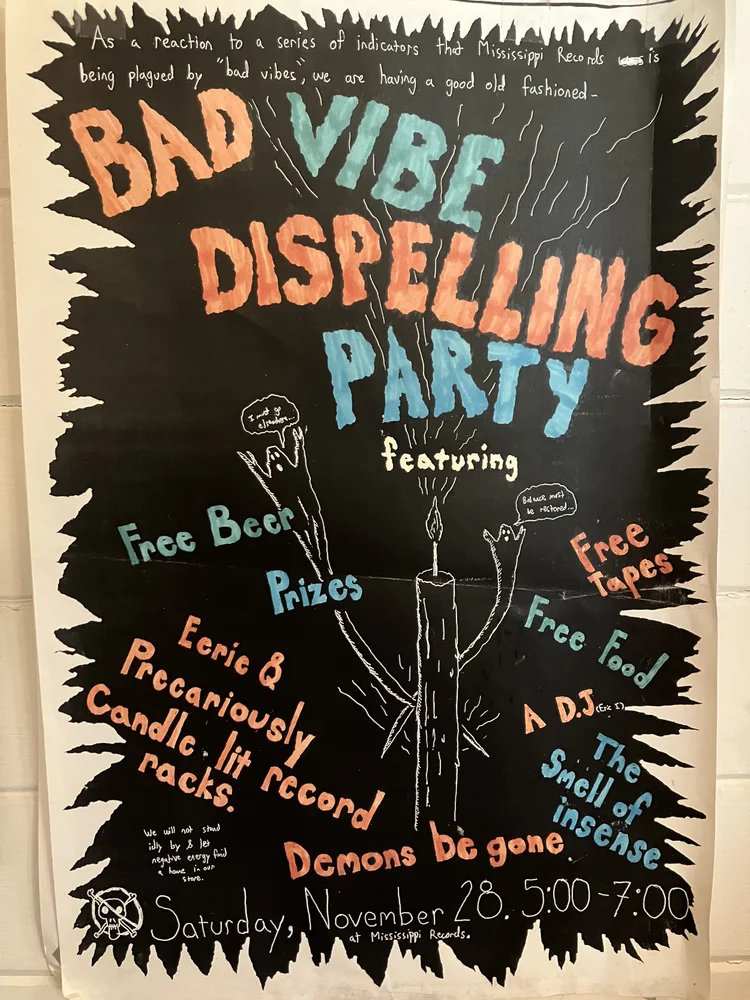 As a reaction to a series of indicators that Mississippi Records is
being plagued by "bad vibes", we are having a good old fashioned -
BAD VIBE
DISPELLING
PARTY
featuring
I must go
elsewhere...
Balance must
be restored...
Free Beer
Prizes
Free
Tapes
Free Food
Eerie &
Precariously
Candle lit record
racks.
A D.J. (Eric I)
The
Smell of
insense
We will not stand
idly by & let
negative energy find
a home in our
store.
Demons be gone.
Saturday, November 28. 5:00-7:00
at Mississippi Records.